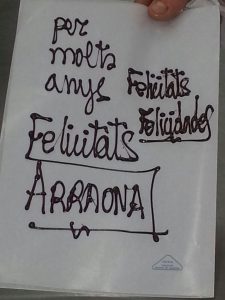 per
molts
anys
Felicitats
Felicidades
Felicitats
ARRAONA